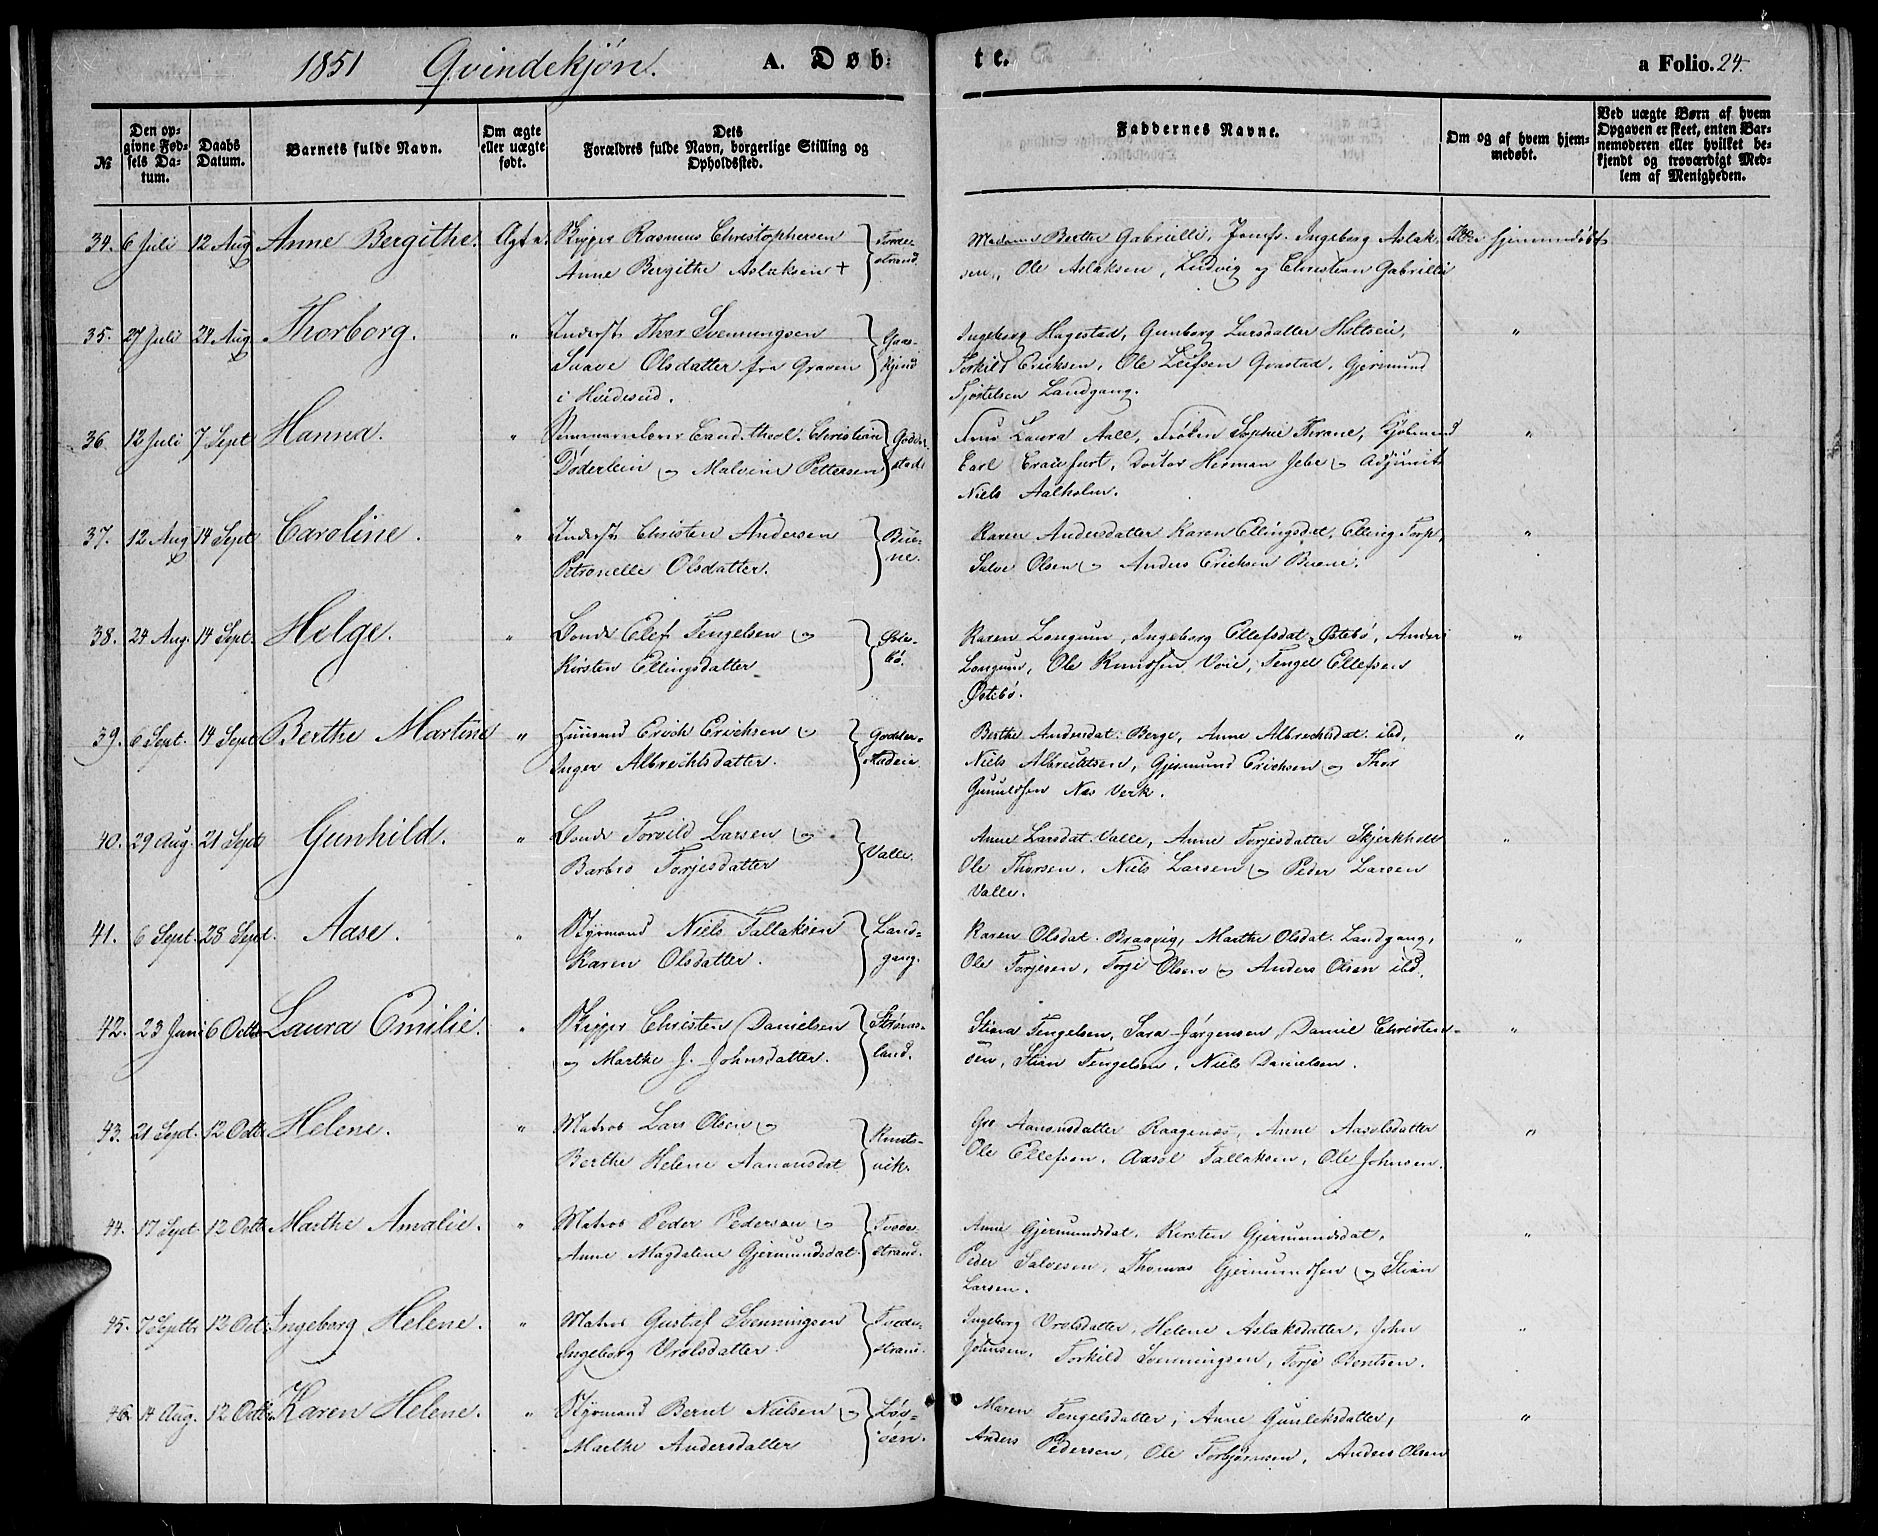 1851 Qvindekjön. A. Døbte. a Folio. 24.
№
Den opgivne Fødsels Datum.
Daabs Datum.
Barnets fulde Navn.
Om ægte eller uægte født.
Dets Forældres fulde Navn, borgerlige Stilling og Opholdssted.
Faddernes Navne.
Om og af hvem hjemmedøbt.
Ved uægte Børn af hvem Opgaven er skeet, enten Barnemoderen eller hvilket bekjendt og troværdigt Medlem af Menigheden.
34. 6 Juli 12 Aug Anne Bergithe. Skipper Rasmus Christophersen
Anne Bergithe Aslaksen +
Madame Berthe Gabrielli, Jomf. Ingeborg Aslak-
sen, Ole Aslaksen, Ludvig og Christian Gabrielli
35. 27 Juli 24 Aug Thorborg. " Inderst Thor Svenningsen
Olsdatter fra Graven
i Hvideseid.
Ingeborg Hagestad, Gunborg Larsdatter
Torkild Ericksen, Ole Leifsen Qvastad, Gjermund
Landgang. "
36. 12 Juli 7 Sept Hanna. " Cand. theol. Christian
Døderlein og Malvine Pettersen
Fru Laura Aall, Frøken Sophie
Carl Doctor Herman og Adjunkt
Niels Aalholm. "
37. 12 Aug 14 Sept Caroline. " Inderst Christen Andersen
Petronelle Olsdatter. Bue-
ne.
Karen Andersdatter Karen Ellingsdat, Elling Torp,
Salve Olsen og Anders Erichsen Buene. "
38. 24 Aug. 14 Sept. Helge. " Bonde Elef Tengelsen og
Kirsten Ellingsdatter Øste-
bö.
Karen Longum, Ingeborg Ellefsdat. Østebö, Anders
Longum, Ole Knudsen Voie, Tengel Ellefsen
Østebö. "
39. 6 Sept. 14 Sept Berthe Martine " Huusmd Erich Erichsen og
Inger Albrechtsdatter.
Berthe Andersdat. Berge, Anne Albrechtsdat. ibd,
Niels Albrechtsen, Gjermund Erichsen og Thor
Gunuldsen Nes Verk. "
40. 29 Aug. 21 Sept Gunhild. " Bonde Torvild Larsen og
Barbro Torjesdatter Valle.
Anne Larsdat. Valle, Anne Torjesdatter Skjerkholt
Ole Thorsen, Niels Larsen og Peder Larsen
Valle. "
41. 6 Sept. 28 Sept. Aase. " Styrmand Niels Tallaksen
Karen Olsdatter. Land-
gang.
Karen Olsdat. Braavig, Marthe Olsdat. Landgang,
Ole Torjesen, Torje Olsen og Anders Olsen ibd. "
42. 23 Juni 6 Octb Laura Emilie. " Skipper Christen Danielsen
og Marthe J. Johnsdatter. Strøms-
land.
Stiana Tengelsen, Sara Jørgensen Daniel Christen-
sen, Stian Tengelsen, Niels Danielsen. "
43. 21 Sept. 12 Octb Helene. " Matros Lars Olsen og
Berthe Helene Aanonsdat Knuts-
vik.
Gro Aanonsdatter Raagenæs, Anne Aasolsdatter
Ole Ellefsen, Aasol Tallaksen, Ole Johnsen. "
44. 17 Sept. 12 Octb Marthe Amalie. " Matros Peder Pedersen og
Anne Magdalene Gjermundsdat. Tvede-
strand.
Anne Gjermundsdat. Kirsten Gjermundsdat.
Peder Salvesen, Thomas Gjermundsen og Stian
Larsen. "
45. 7 Septb 12 Oct Ingeborg Helene. " Matros Gustaf Svenningsen
Ingeborg Vrolsdatter. Tvede-
strand.
Ingeborg Vrolsdatter, Helene Aslaksdatter, John
Johnsen, Torkild Svenningsen, Torje Bentsen. "
46. 14 Aug. 12 Octb Karen Helene. " Styrmand Bernt Nielsen og
Marthe Andersdatter
Maren Tengelsdatter, Anne Gunleksdatter,
Anders Pedersen, Ole Torbjørnsen, Anders Olsen "